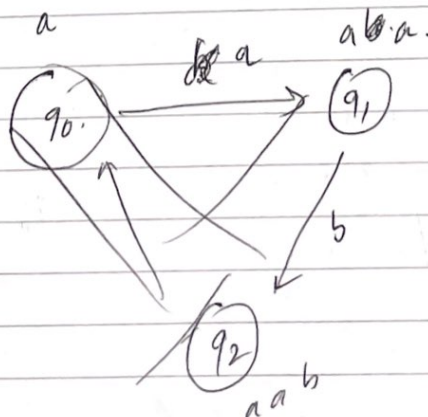 a
a a.
a
q0.
q1
b
q2
a a b